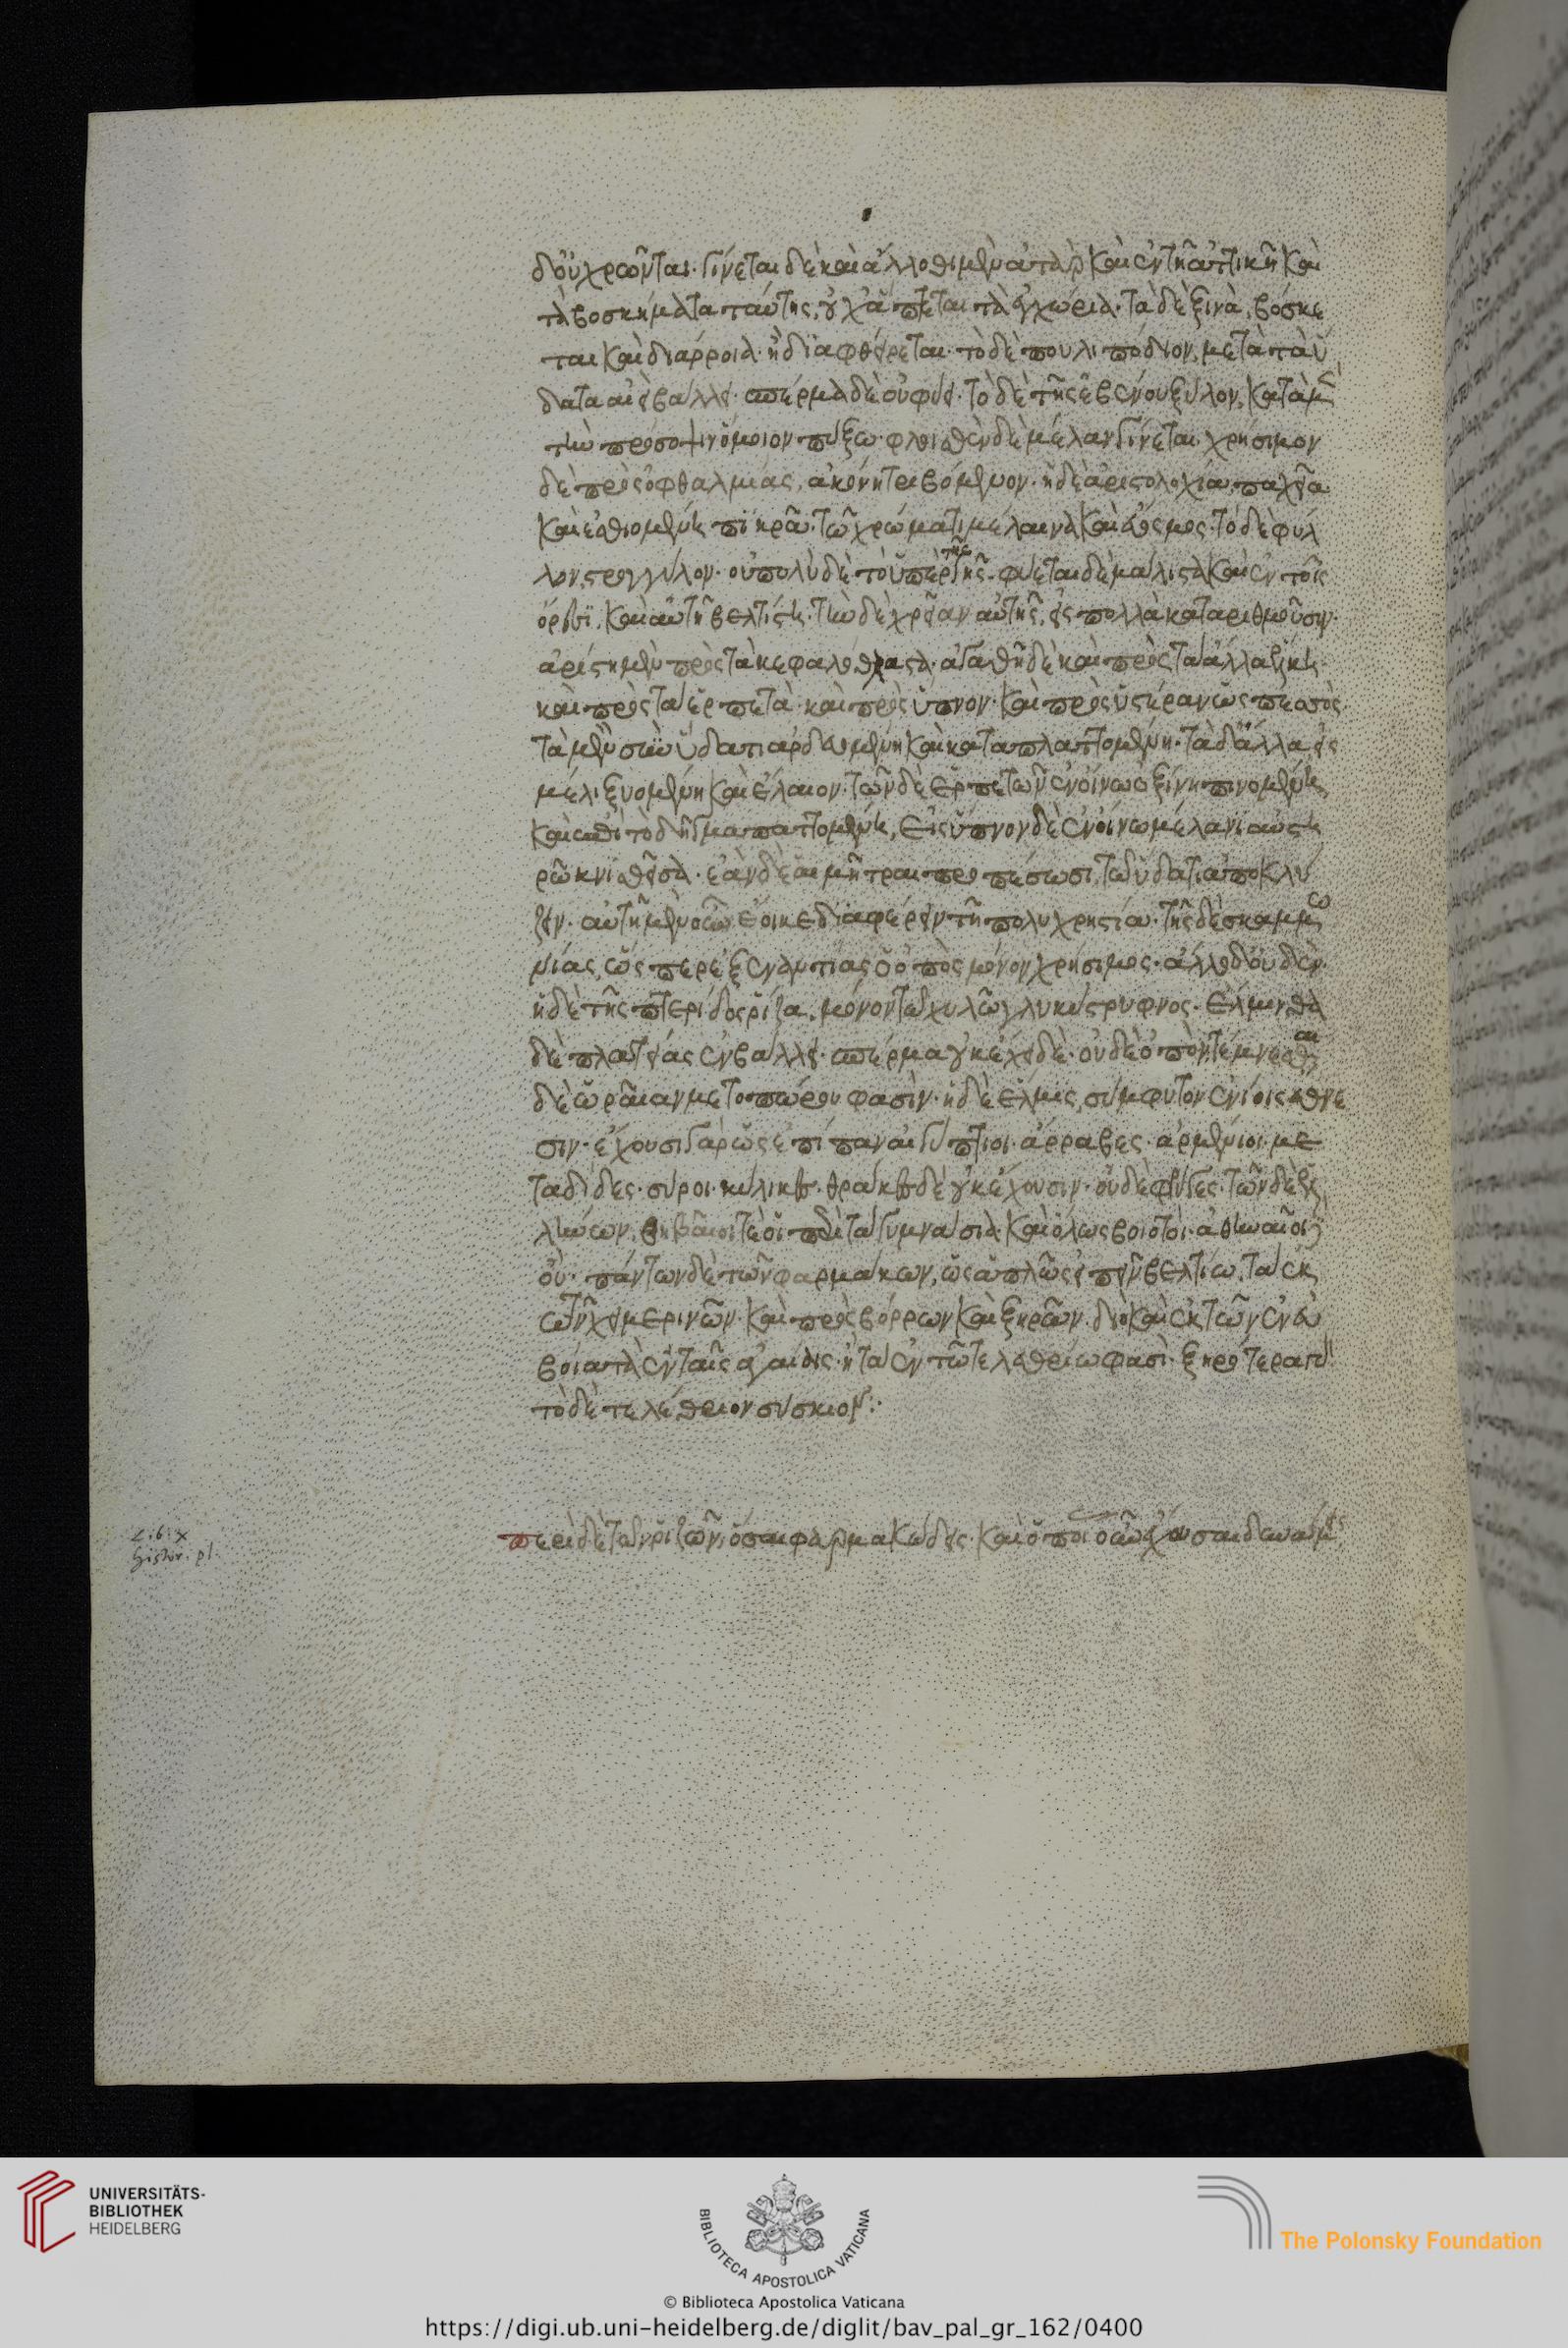 δ' οὐ χρῶνται. γίνεται δὲ καὶ ἄλλοθι μὲν ἀτὰρ καὶ ἐν τῆ ἀττικῆ καὶ
τὰ βοσκήματα ταύτης, οὐχ ἅπτεται τὰ ἐγχώρια. τὰ δὲ ξενὰ, βόσκε
ται καὶ διάρροια ἢ διαφθείρεται. τὸ δὲ πουλιπόδιον, μετὰ τὰ ὕ
δατα αἰεὶ βάλλει. σπέρμα δὲ οὐ φύει. τὸ δὲ τῆς ἐβένου ξύλον, κατὰ μὲν
τὴν πρόσοψιν ὅμοιον πύξω. φλοισθὲν δὲ μέλαν γίνεται χρήσιμον
δὲ πρὸς ὀφθαλμίας, ἀκόνη τριβόμενον. ἡ δὲ ἀριστολοχία, παχεῖα
καὶ ἐσθιομένη πικρᾶ. τῶ χρώματι μέλαινα καὶ εὔοσμος. τὸ δὲ φύλ
λον, στρογγύλον. οὐ πολὺ δὲ τὸ ὑπὲρ τῆς γῆς. φύεται δὲ μάλιστα καὶ ἐν τοῖς
ὄρεσι, καὶ αὐτὴ βελτίστη. τὴν δὲ χρείαν αὐτῆς, εἰς πολλὰ καταριθμοῦσιν.
ἀρίστη μὲν πρὸς τὰ κεφαλόθλαστα. ἀγαθὴ δὲ καὶ πρὸς τὰ ἄλλα ἕλκη
καὶ πρὸς τὰ ἑρπετὰ καὶ πρὸς ὕπνον. καὶ πρὸς ὑστέραν ὡς πεσσὸς.
τὰ μὲν σὺν ὕδατι ἀρδευομένη καὶ καταπλαττομένη. τὰ δ' ἄλλα εἰς
μέλι ξυομένη καὶ ἔλαιον. τῶν δὲ ἑρπετῶν ἐν οἴνω ὀξίνη πινομένη
καὶ ἐπὶ τὸ δῆγμα παττομένη, εἰς ὕπνον δὲ ἐν οἴνω μέλανι αὐστη
ρῶ κνισθεῖσα. ἐὰν δὲ αἱ μῆτραι προπέσωσι, τῶ ὕδατι ἀποκλύ
ζειν. αὐτὴ μὲν οὖν ἔοικε διαφέρειν τῆ πολυχρηστία. τῆς δὲ σκαμμω
νίας, ὥσπερ ἐξ ἐναντίας ὁ ὀπὸς μόνον χρήσιμος. ἄλλο δ' οὐδὲν.
ἡ δὲ τῆς πτερίδος ῥίζα, μόνον τῶ χυλῶ γλυκύστρυφνος. ἕλμινθα
δὲ πλατείας ἐκβάλλει. σπέρμα οὐκ ἔχει δὲ. οὐδὲ ὀπὸν. τέμνεσθαι
δὲ ὡραίαν μετοπώρου φασὶν. ἡ δὲ ἕλμις, σύμφυτον ἐνίοις ἔθνε
σιν. ἔχουσι γὰρ ὡς ἐπίπαν αἰγύπτιοι. ἄρραβες. ἀρμένιοι. με
ταδίδες. σύροι. κίλικες. θράκες δὲ οὐκ ἔχουσιν. οὐδὲ φρύγες. τῶν δὲ ἑλ
λήνων, θηβαῖοί τε οἱ περὶ τὰ γυμνάσια καὶ ὅλως βοιοτοί. ἀθηναῖοι δὲ
οὐ. πάντων δὲ τῶν φαρμάκων, ὡς ἁπλῶς εἰπεῖν βελτίω, τὰ ἐκ
τῶν χειμερινῶν. καὶ πρὸς βόρρων καὶ ξηρῶν. διὸ καὶ ἐκ τῶν ἐν εὐ
βοία τὰ ἐν ταῖς αἰγαῖοις. ἢ τὰ ἐν τῶ τελεθρίω φασὶ. ξηρότερα γὰρ
τὸ δὲ τελέθριον σύσκιον:
περὶ δὲ τῶν ῥιζῶν, ὅσαι φαρμακώδεις. καὶ ὅποι οὖν ἔχουσαι δυνάμεις
L: 6: x
histor. pl.
UNIVERSITÄTS-
BIBLIOTHEK
HEIDELBERG
BIBLIOTECA APOSTOLICA VATICANA
The Polonsky Foundation
© Biblioteca Apostolica Vaticana
https://digi.ub.uni-heidelberg.de/diglit/bav_pal_gr_162/0400